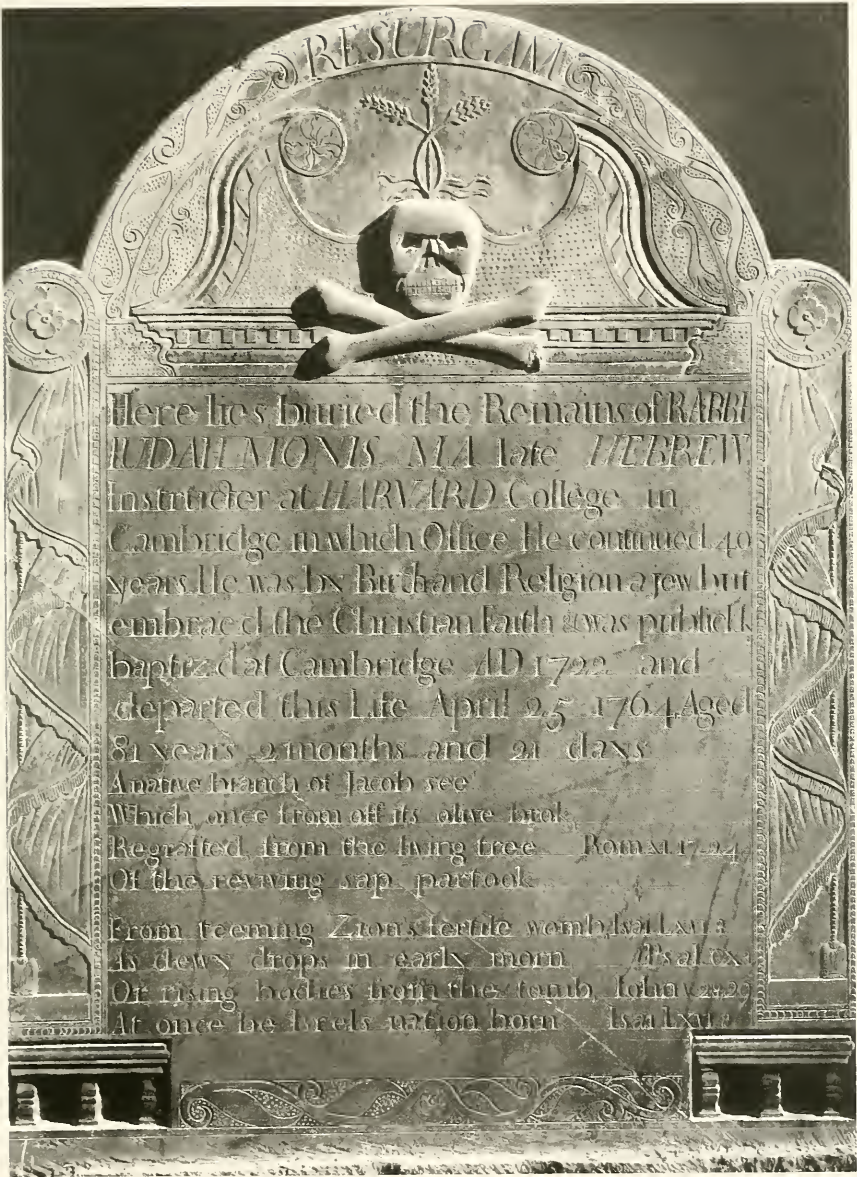 RESURGAM
Here lies buried the Remains of RABBI
IUDAH MONIS M.A late HEBREW
Instructer at HARVARD College in
Cambridge in which Office He continued 40
years. He was by Birth and Religion a jew but
embrac'd the Christian Faith & was publickly
baptiz'd at Cambridge AD 1722 and
departed this Life April 25 1764, Aged
81 years 2 months and 21 days
A native branch of Jacob see
Which once from off its olive brok
Regrafted from the living tree Rom XI 17-24
Of the reviving sap partook
From teeming Zion's fertile womb, Isai LXVI 8
As dewy drops in early morn Psal CX
Or rising bodies from the tomb, Iohn V
At once be Isr'els nation born Isai LXVI 8